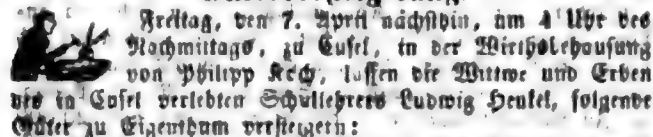 Freitag, den 7. April nächsthin, um 4 Uhr des
Nachmittags, zu Cusel, in der Wirthsbehausung
von Philipp Koch, lassen die Wittwe und Erben
des in Cusel verlebten Schullehrers Ludwig Henkel, folgende
Güter zu Eigenthum versteigern: